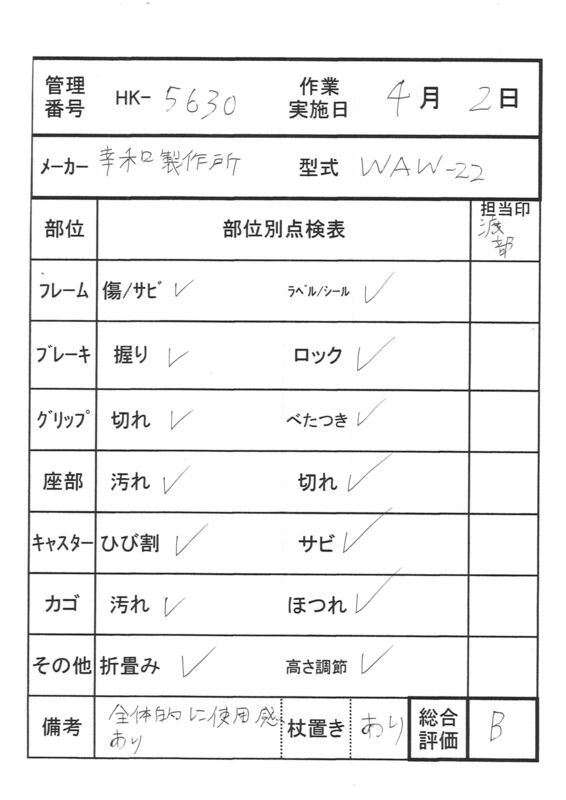 管理番号 HK- 5630 作業実施日 4月 2日
メーカー 幸和製作所 型式 WAW-22
部位 部位別点検表 担当印 渡部
フレーム 傷/サビ ✓ ラベル/シール ✓
ブレーキ 握り ✓ ロック ✓
グリップ 切れ ✓ べたつき ✓
座部 汚れ ✓ 切れ ✓
キャスター ひび割 ✓ サビ ✓
カゴ 汚れ ✓ ほつれ ✓
その他 折畳み ✓ 高さ調節 ✓
備考 全体的に使用感あり 杖置き あり 総合評価 B